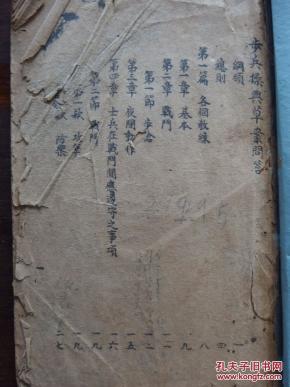 步兵操典草案問答
綱領 一
總則 四
第一篇 各個教練 八
第一章 基本 九
第二章 戰鬥 一一
第一節 步倉 一二
第三章 夜間動作 一五
第四章 士兵在戰鬥間應遵守之事項 一六
第二節 戰鬥 一九
第一款 攻擊 一九
防禦 二七